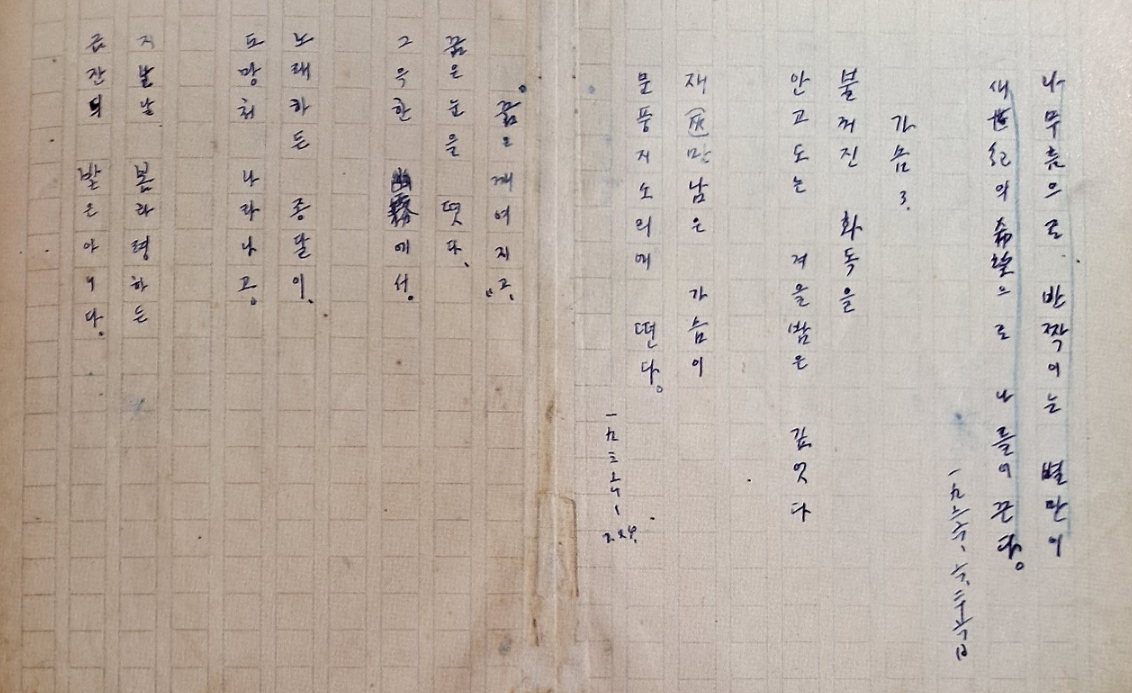 나무틈으로 반짝이는 별만이
새世紀의 希望으로 나를이끈다。
一九三六、六、二十六日
가슴 3.
불꺼진 화독을
안고도는 겨울밤은 깊엇다
재灰만남은 가슴이
문풍지소리에 떤다。
꿈은깨여지고"
꿈은눈을 떳다、
그윽한 幽霧에서。
노래하든 종달이、
도망처 나라나고。
지난날 봄타령하든
금잔듸 밭은아니다。